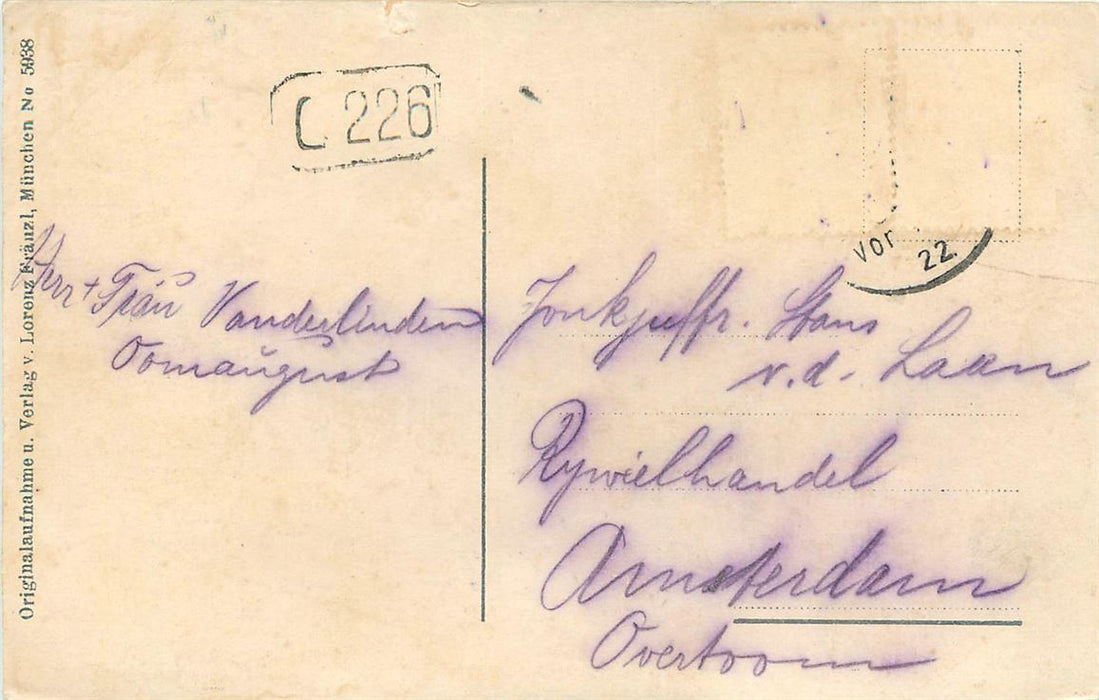 Originalaufnahme u. Verlag v. Lorenz Fränzl, München No 5938
C 226
VOR
22
Herr + Fraü Vanderlinden
Oomaügust
Jonkjuffr. Stans
v.d. Laan
Rywielhandel
Amsterdam
Overtoom